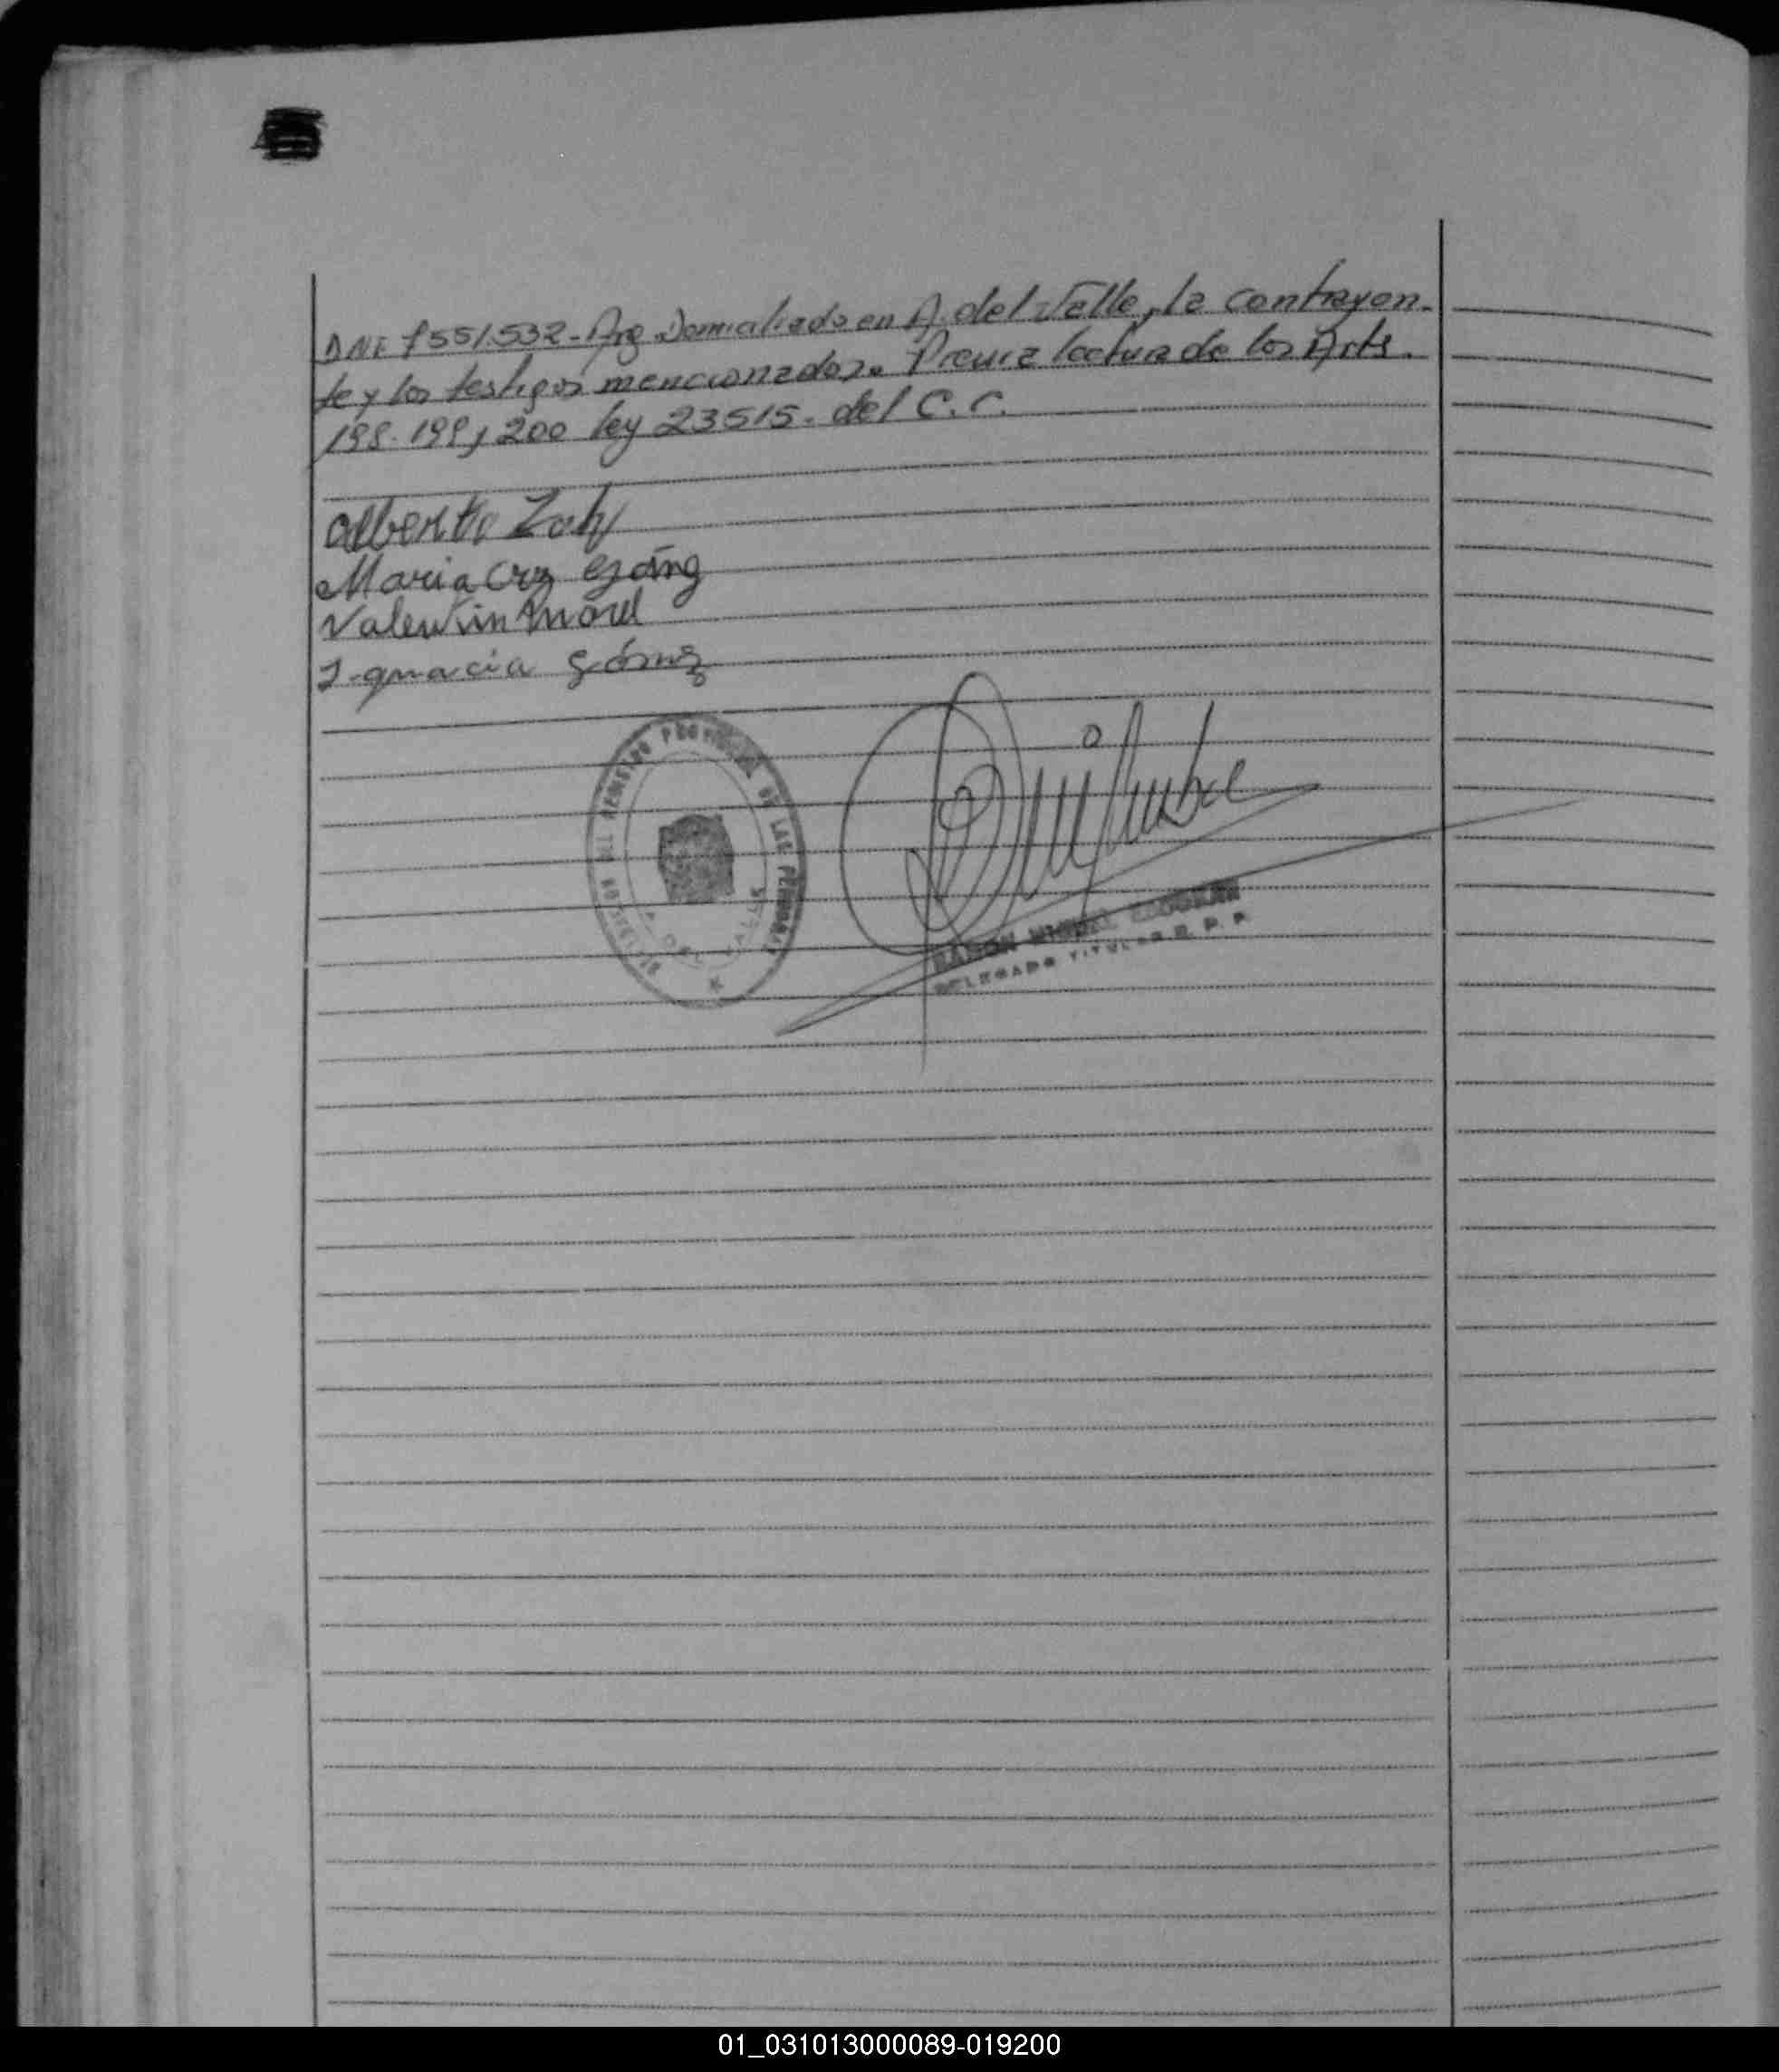 DNI 7551.532 - Arg. Domiciliado en A. del Valle, la contrayen-
te y los testigos mencionados. Previa lectura de los Arts.
198. 199, 200 ley 23515. del C. C.
Alberto
Maria Cruz
Valentin Morel
Ignacia Gómez
REGISTRO PROVINCIAL DE LAS PERSONAS
DEL VALLE
RAMON MIGUEL
DELEGADO TITULAR R. P. P.
01_031013000089-019200